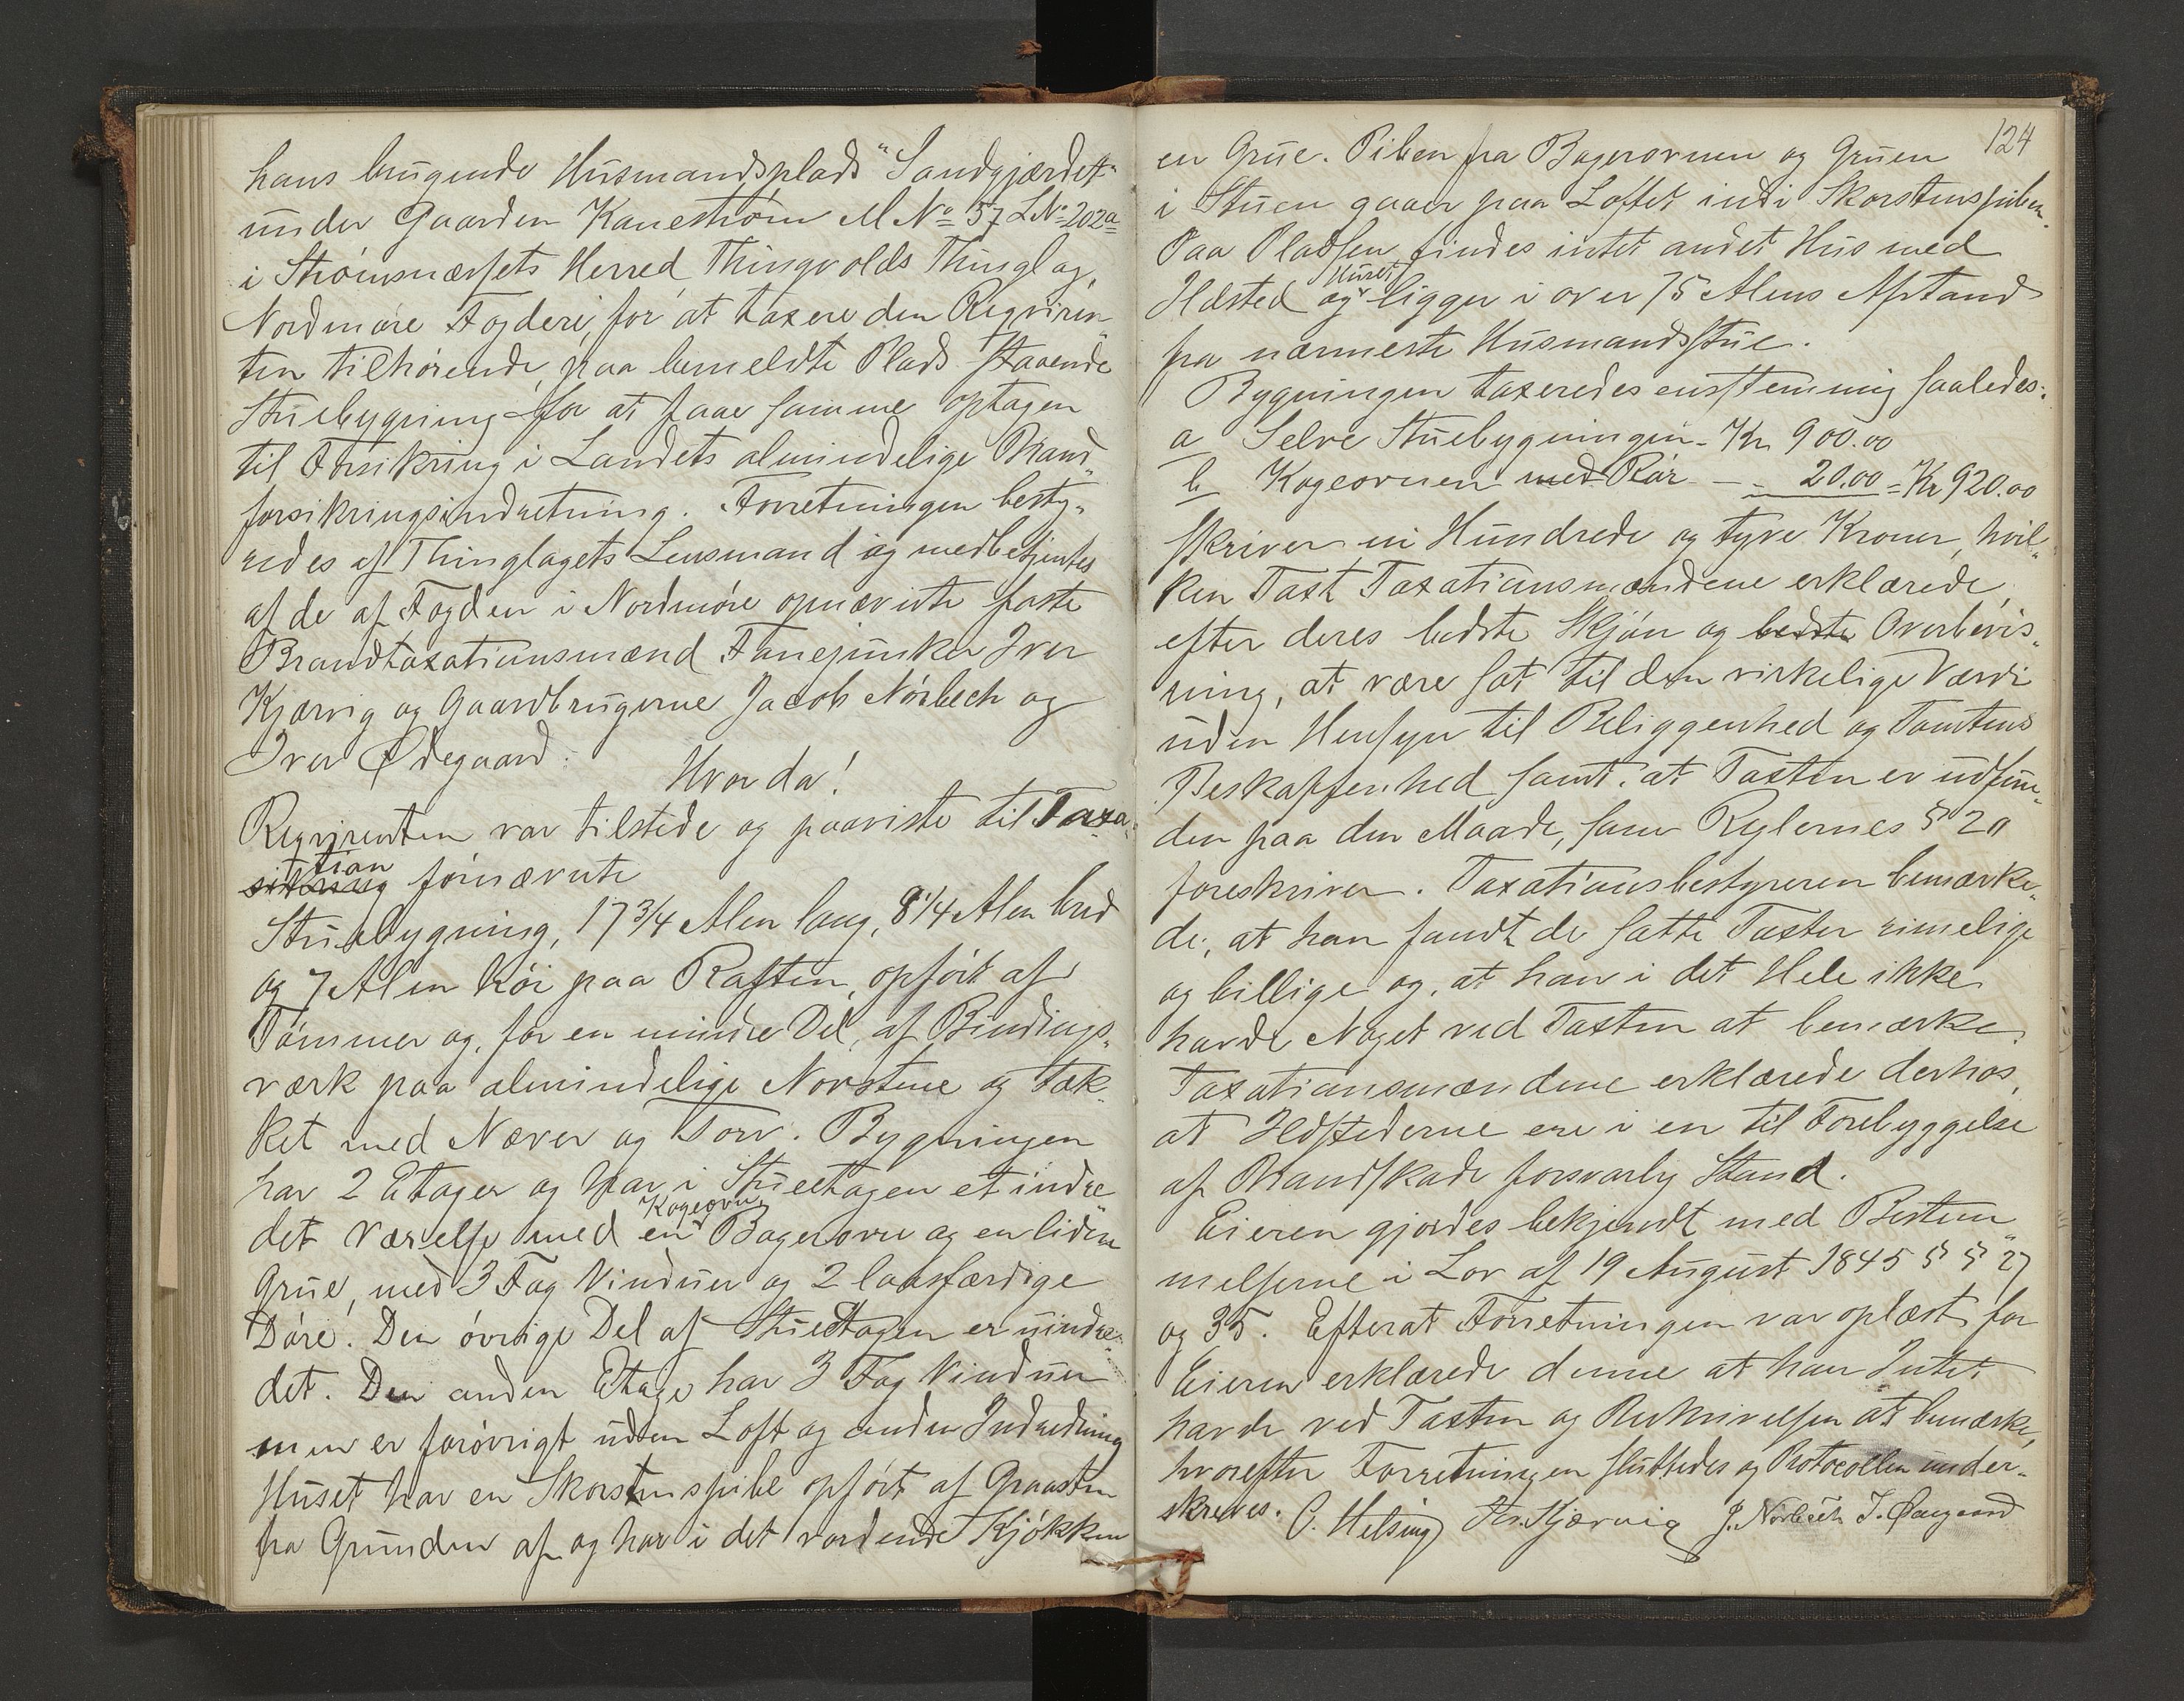 hans brugende Husmandsplads "Sandgjærdet"
under Gaarden Kanestrøm M No 57 L No 202a
i Strømsnæssets Herred, Thingvolds Thinglag,
Nordmøre Fogderi, for at taxere den Reqviren„
ten tilhørende, paa bemeldte Plads staaende
Stuebygning for at faae samme optagen
til Forsikring i Landets almindelige Brand„
forsikringsindretning. Forretningen besty„
redes af Thinglagets Lensmand og medbetjentes
af de af Fogden i Nordmøre opnævnte faste
Brandtaxationsmænd Fanejunker Iver
Kjærvig og Gaardbrugerne Jacob Nørbech og
Iver Ødegaard:
Hvorda!
Reqvirenten var tilstede og paaviste til Taxa„
tion
sikring fornævnte
Stuebygning, 17 3/4 Alen lang, 8 1/4 Alen bred
og 7 Alen høi paa Raften, opført af
Tømmer og, for en mindre Del, af Bindings„
værk paa almindelige Novstene og tæk„
ket med Næver og Torv. Bygningen
har 2 Etager og har i Stueetagen et indre„
Kogeovn,
det Værelse med en Bagerovn og en liden
Grue, med 3 Fag Vinduer og 2 laasfærdige
Døre. Den øvrige Del af Stueetagen er uindre„
det. Den anden Etage har 3 Fag Vinduer
men er forøvrigt uden Loft og anden Indredning
Huset har en Skorstenspibe opført af Graasten
fra Grunden af og har i det vordende Kjøkken
124
en Grue. Piben fra Bagerovnen og Gruen
i Stuen gaaer paa Loftet ind i Skorstenspiben.
Paa Pladsen findes intet andet Hus med
Huset
Ildsted og ligger i over 75 Alens Afstand
fra nærmeste Husmandsstue.
Bygningen taxeredes enstemmig saaledes:
a Selve Stuebygningen - Kr 900.00
b Kogeovnen med Rør - - 20.00 = Kr 920.00
skriver ni Hundrede og tyve Kroner, hvil„
ken Taxt Taxationsmændene erklærede,
efter deres bedste Skjøn og bedste Overbevis„
ning, at være sat til den virkelige Værdi
uden Hensyn til Beliggenhed og Tomtens
Beskaffenhed samt, at Taxten er udfun„
den paa den Maade, som Reglernes § 20
foreskriver. Taxationsbestyreren bemærke„
de, at han fandt de satte Taxter rimelige
og billige og, at han i det Hele ikke
havde Noget ved Taxten at bemærke.
Taxationsmændene erklærede derhos,
at Ildstederne ere i en til Forebyggelse
af Brandskade forsvarlig Stand.
Eieren gjordes bekjendt med Bestem„
melserne i Lov af 19 August 1845 § § 27
og 35. Efterat Forretningen var oplæst for
Eieren erklærede denne at han Intet
havde ved Taxten og Beskrivelsen at bemærke,
hvorefter Forretningen sluttedes og Protocollen under„
skreves. O. Helsing Iv. Kjærvig J. Nørbech I. Øegaard